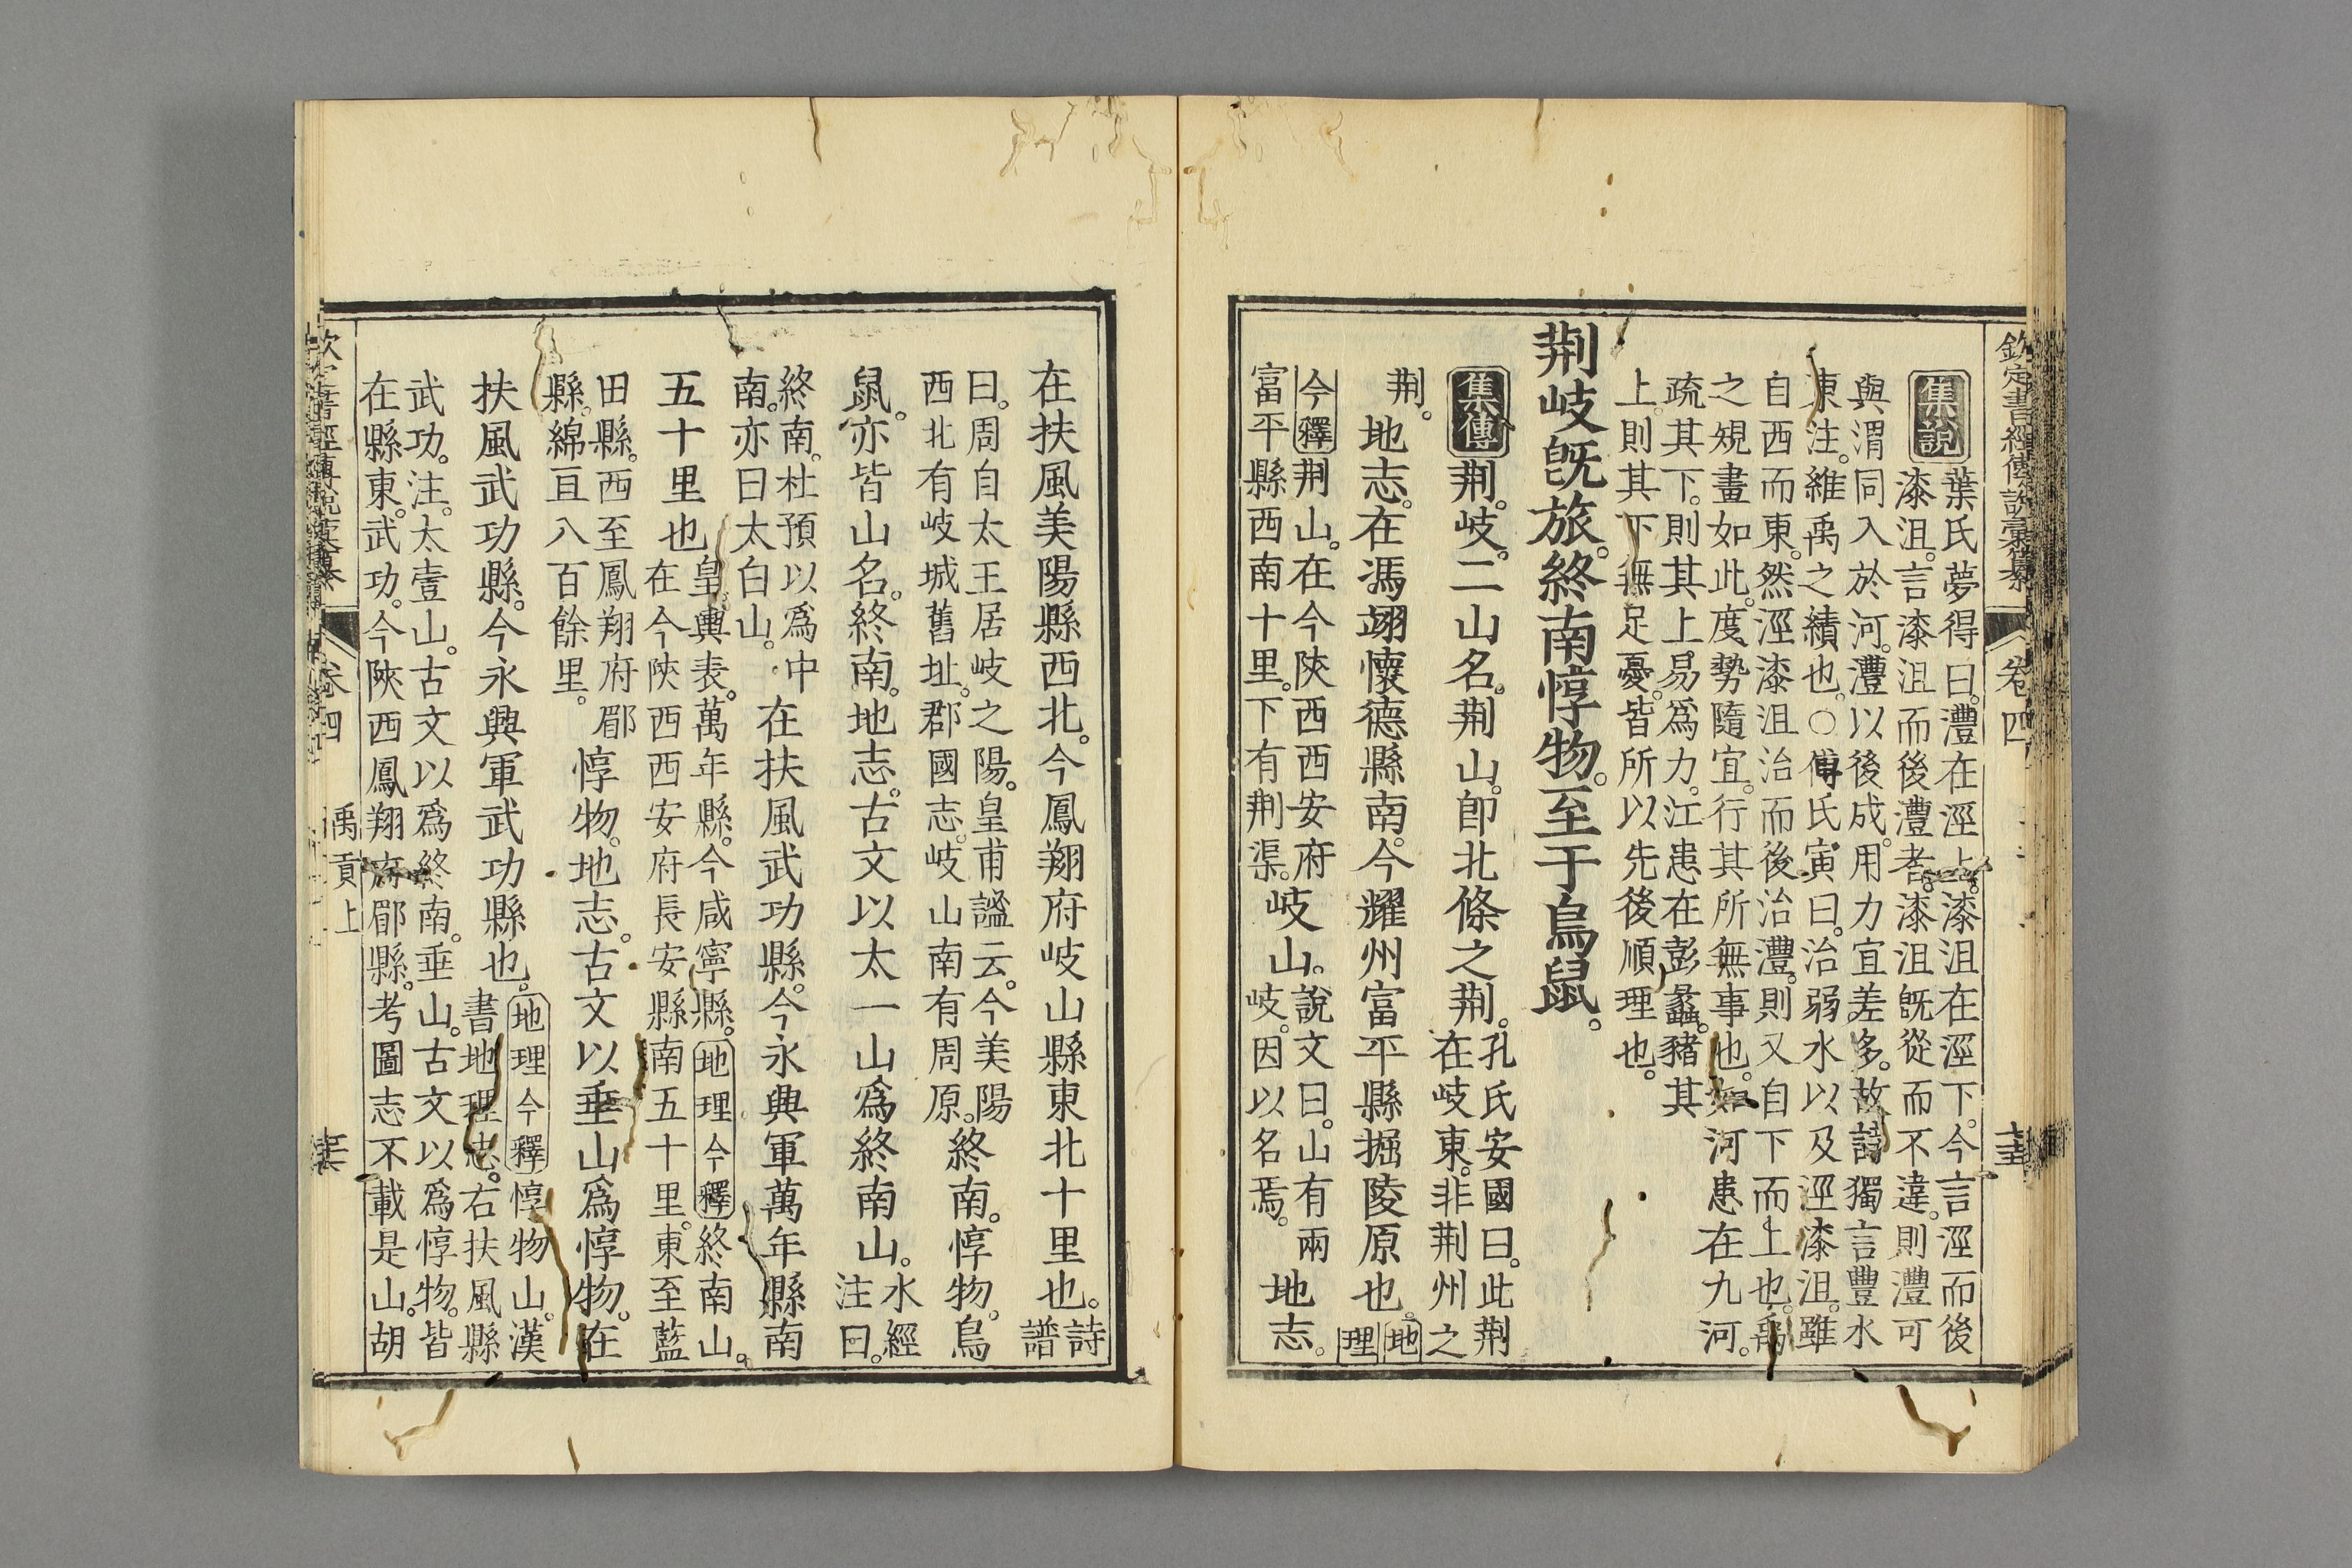 欽定書經傳說彙纂 卷四
集說 葉氏夢得曰。灃在涇上。漆沮在涇下。今言涇而後
漆沮。言漆沮而後灃者。漆沮旣從而不違。則灃可
與渭同入於河。灃以後成。用力宜差多。故詩獨言豐水
東注。維禹之績也。○傅氏寅曰。治弱水以及涇漆沮。雖
自西而東。然涇漆沮治而後治灃。則又自下而上也。禹
之規畫如此。度勢隨宜。行其所無事也。如河患在九河。
疏其下。則其上易爲力。江患在彭蠡。豬其
上。則其下無足憂。皆所以先後順理也。
荆岐旣旅。終南惇物。至于鳥鼠。
集傳 荆。岐。二山名。荆山。卽北條之荆。孔氏安國曰。此荆
在岐東。非荆州之
荆。地志。在馮翊懷德縣南。今耀州富平縣掘陵原也。地
理
今釋 荆山。在今陝西西安府
富平縣西南十里。下有荆渠。岐山。說文曰。山有兩
岐。因以名焉。地志。
在扶風美陽縣西北。今鳳翔府岐山縣東北十里也。詩
譜
曰。周自太王居岐之陽。皇甫謐云。今美陽
西北有岐城舊址。郡國志。岐山南有周原。終南。惇物。鳥
鼠。亦皆山名。終南。地志。古文以太一山爲終南山。水經
注曰。
終南。杜預以爲中
南。亦曰太白山。在扶風武功縣。今永興軍萬年縣南
五十里也。皇輿表。萬年縣。今咸寧縣。地理今釋 終南山。
在今陝西西安府長安縣南五十里。東至藍
田縣。西至鳳翔府郿
縣。綿亘八百餘里。惇物。地志。古文以垂山爲惇物。在
扶風武功縣。今永興軍武功縣也。地理今釋 惇物山。漢
書地理志。右扶風縣
武功。注。太壹山。古文以爲終南。垂山。古文以爲惇物。皆
在縣東。武功。今陝西鳳翔府郿縣。考圖志不載是山。胡
卷四 禹貢上